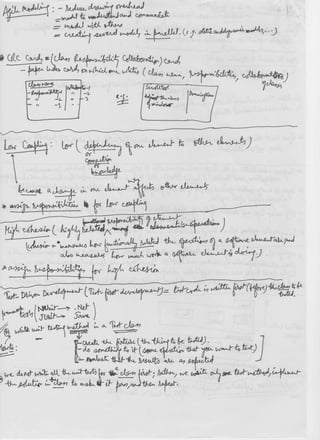 Agile Modeling: - Reduce drawing overhead
= model to understand and communicate
= model with others
= creating several models in parallel. (e.g.
CRC Cards = (Class Responsibility Collaboration) card
- paper index cards on which one writes (class name, responsibilities, collaborators)
of class
class name
- Responsibility 1
- 2
- 3
e.g.:
Low Coupling: Low (dependency of one element to other elements)
or
connection
or
knowledge
because a change in one element may affects other elements
* assign responsibilities for low coupling
High cohesion (highly related responsibility of element operations)
cohesion = "measures how functionally related the operations of a software element are, and
also measures how much work a software element is doing.)
* assign responsibilities for high cohesion
Test Driven Development (Test first development) = test code is written first (before) the class to be
tested.
tests NUnit → .Net
JUnit → Java
write unit testing method in a Test class
- create the fixture (the thing to be tested).
- do something to it (some operation that you want to test)
- evaluate that the results are as expected
we do not write all the unit tests for the class first; Rather, we write only one test method, implement
the solution in class to make it pass, and then repeat.